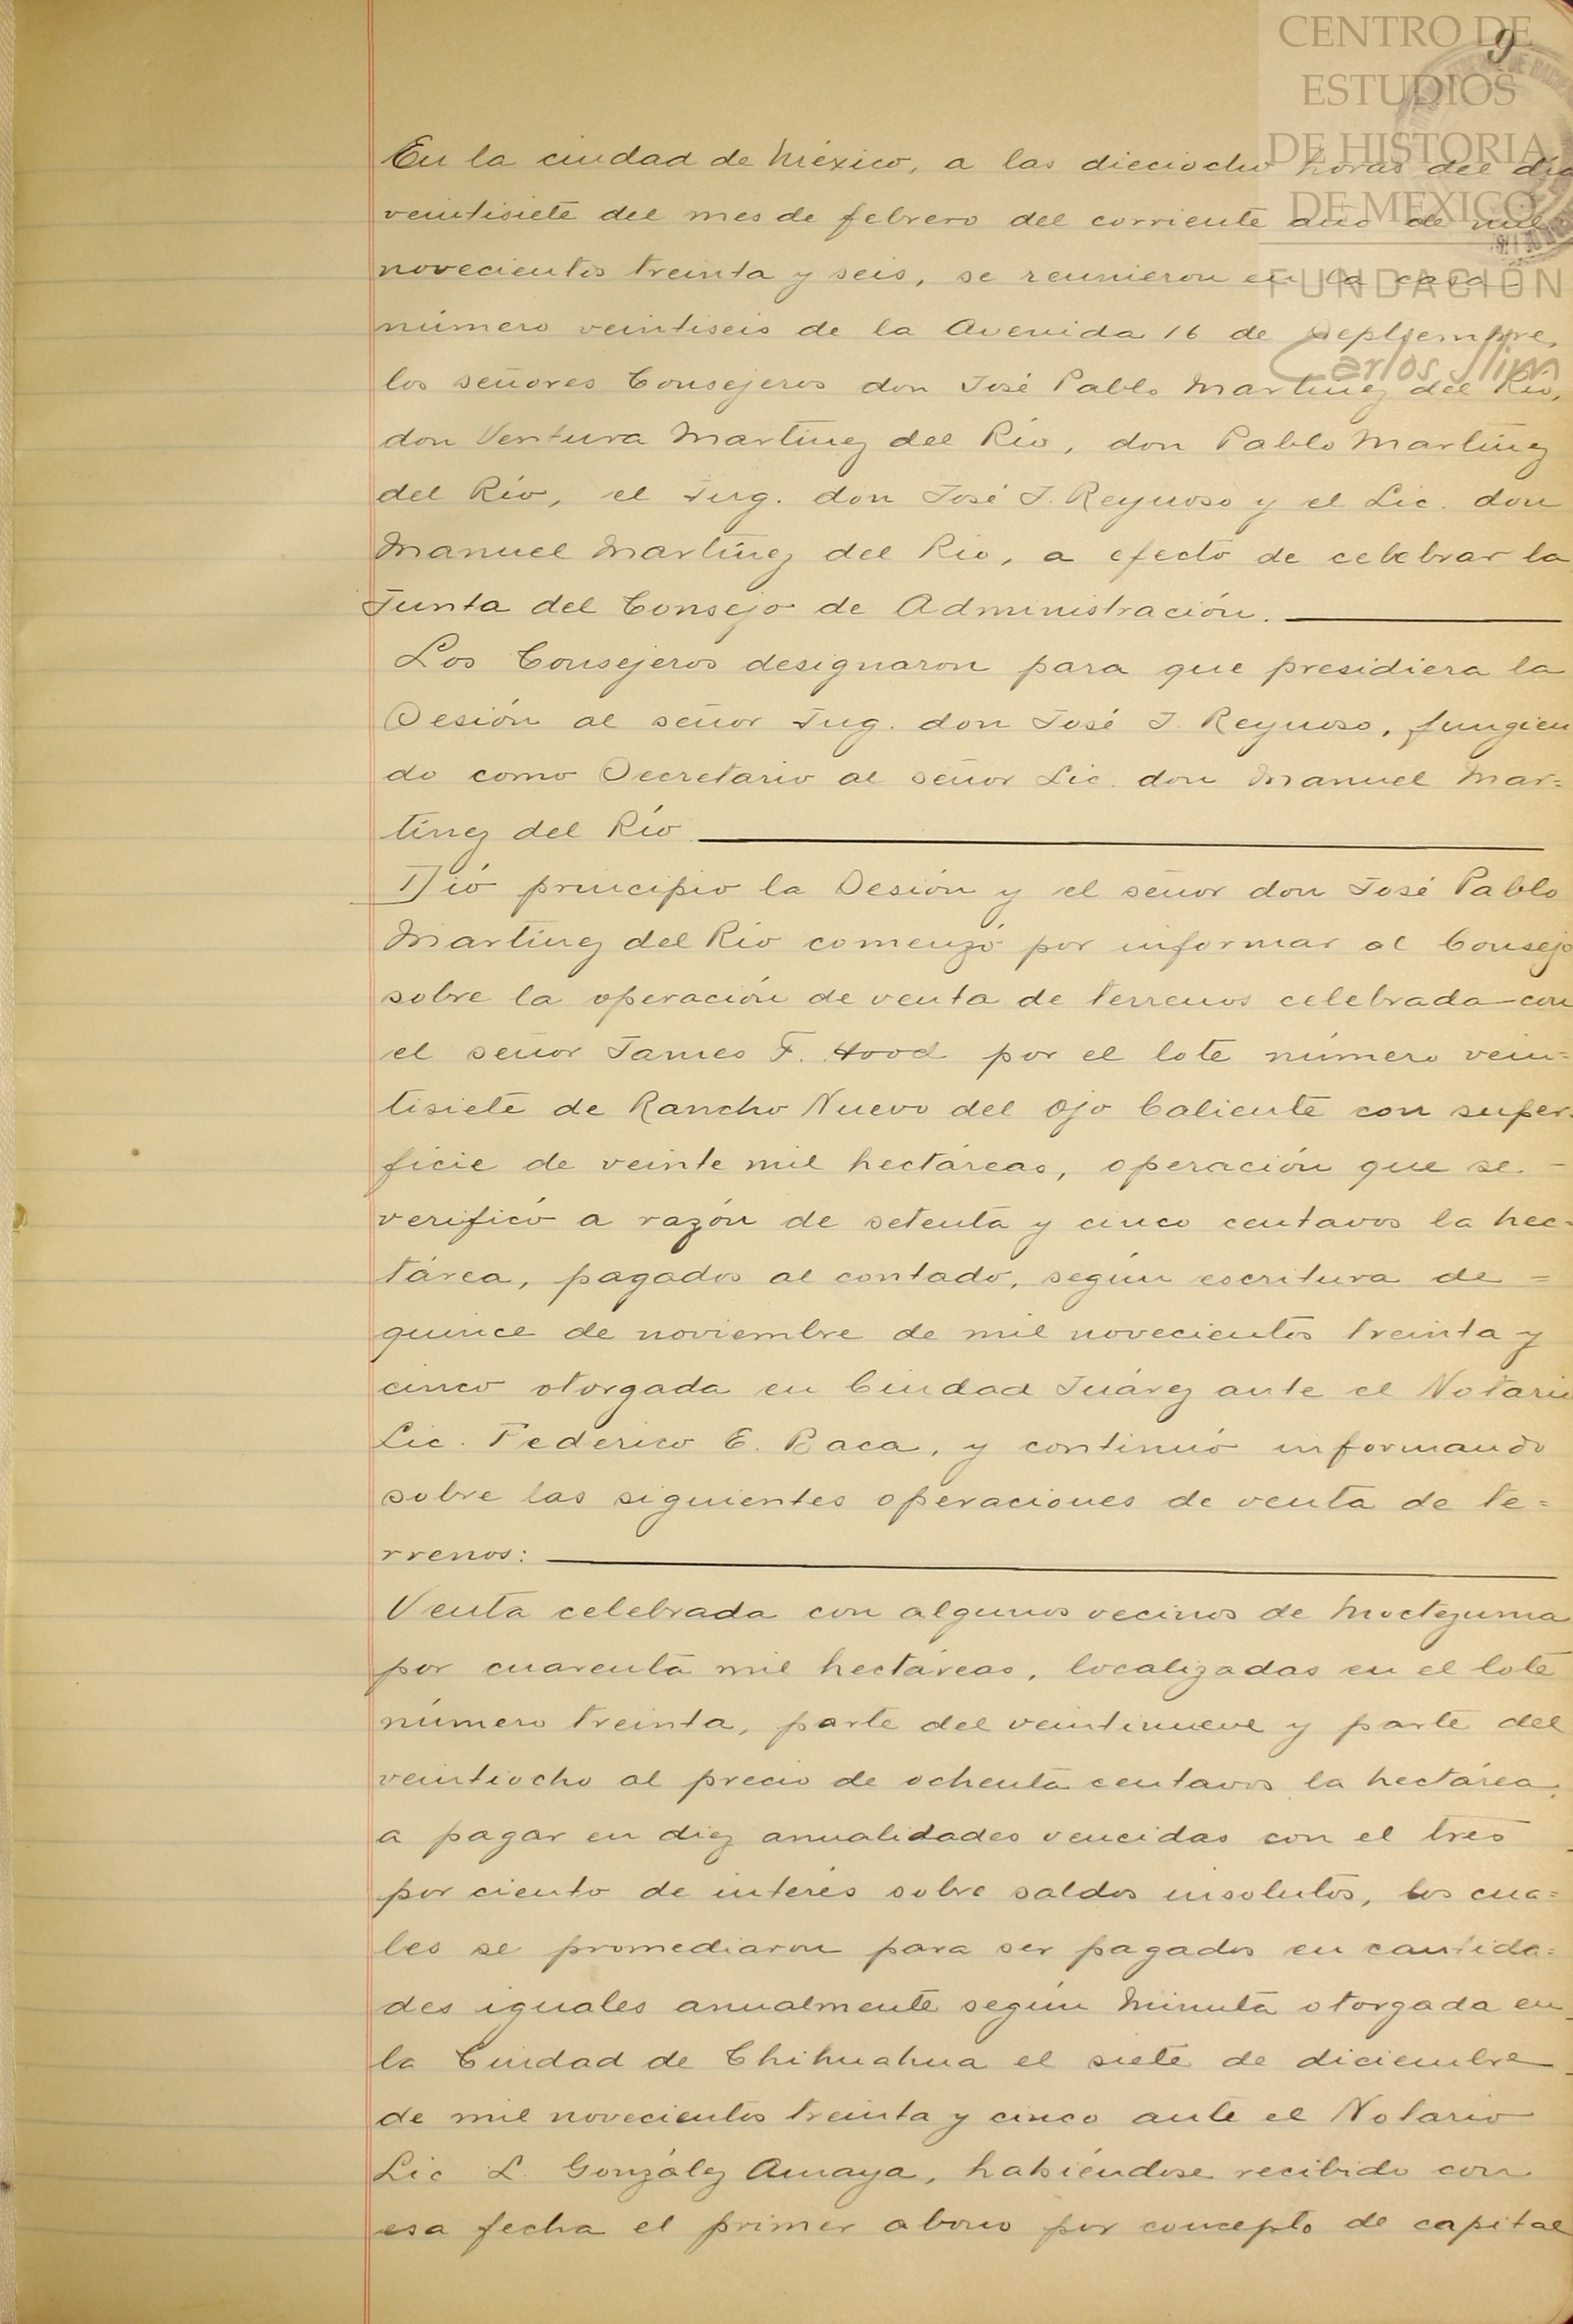 CENTRO DE
ESTUDIOS
DE HISTORIA
DE MEXICO
FUNDACIÓN
Carlos Slim
9
En la ciudad de México, a las dieciocho horas del día
veintisiete del mes de febrero del corriente año de mil
novecientos treinta y seis, se reunieron en la casa
número veintiseis de la Avenida 16 de Septiembre,
los señores Consejeros don José Pablo Martínez del Río,
don Ventura Martínez del Río, don Pablo Martínez
del Río, el Ing. don José J. Reynoso y el Lic. don
Manuel Martínez del Río, a efecto de celebrar la
Junta del Consejo de Administración.
Los Consejeros designaron para que presidiera la
Sesión al señor Ing. don José J. Reynoso, fungien
do como Secretario al señor Lic. don Manuel Mar=
tínez del Río
Dió principio la Sesión y el señor don José Pablo
Martínez del Río comenzó por informar al Consejo
sobre la operación de venta de terrenos celebrada con
el señor James F. Hood por el lote número vein=
tisiete de Rancho Nuevo del Ojo Caliente con super=
ficie de veinte mil hectáreas, operación que se -
verificó a razón de setenta y cinco centavos la hec=
tárea, pagados al contado, según escritura de =
quince de noviembre de mil novecientos treinta y
cinco otorgada en Ciudad Juárez ante el Notario
Lic. Federico E. Baca, y continuó informando
sobre las siguientes operaciones de venta de te=
rrenos:
Venta celebrada con algunos vecinos de Moctezuma
por cuarenta mil hectáreas, localizadas en el lote
número treinta, parte del veintinueve y parte del
veintiocho al precio de ochenta centavos la hectárea,
a pagar en diez anualidades vencidas con el tres
por ciento de interés sobre saldos insolutos, los cua=
les se promediaron para ser pagados en cantida=
des iguales anualmente según Minuta otorgada en
la Ciudad de Chihuahua el siete de diciembre
de mil novecientos treinta y cinco ante el Notario
Lic L. González Amaya, habiéndose recibido con
esa fecha el primer abono por concepto de capital